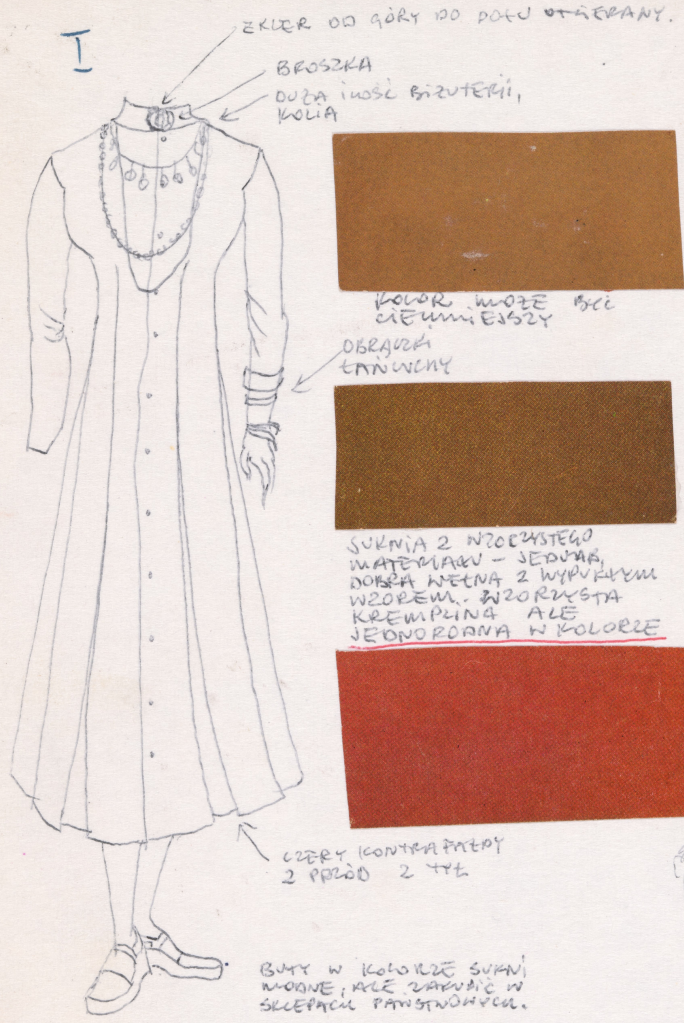 I
EKLER OD GÓRY DO DOŁU OTWIERANY.
BROSZKA
DUŻA ILOŚĆ BIŻUTERII,
KOLIA
KOLOR MOŻE BYĆ
CIEMNIEJSZY
OBRĄCZKI
ŁAŃCUCHY
SUKNIA Z WZORZYSTEGO
MATERIAŁU – JEDWAB,
DOBRA WEŁNA Z WYPUKŁYM
WZOREM. WZORZYSTA
KREMPLINA ALE
JEDNORODNA W KOLORZE
CZTERY KONTRAFAŁDY
2 PRZÓD 2 TYŁ
BUTY W KOLORZE SUKNI
MODNE, ALE ZAKUPIĆ W
SKLEPACH PAŃSTWOWYCH.